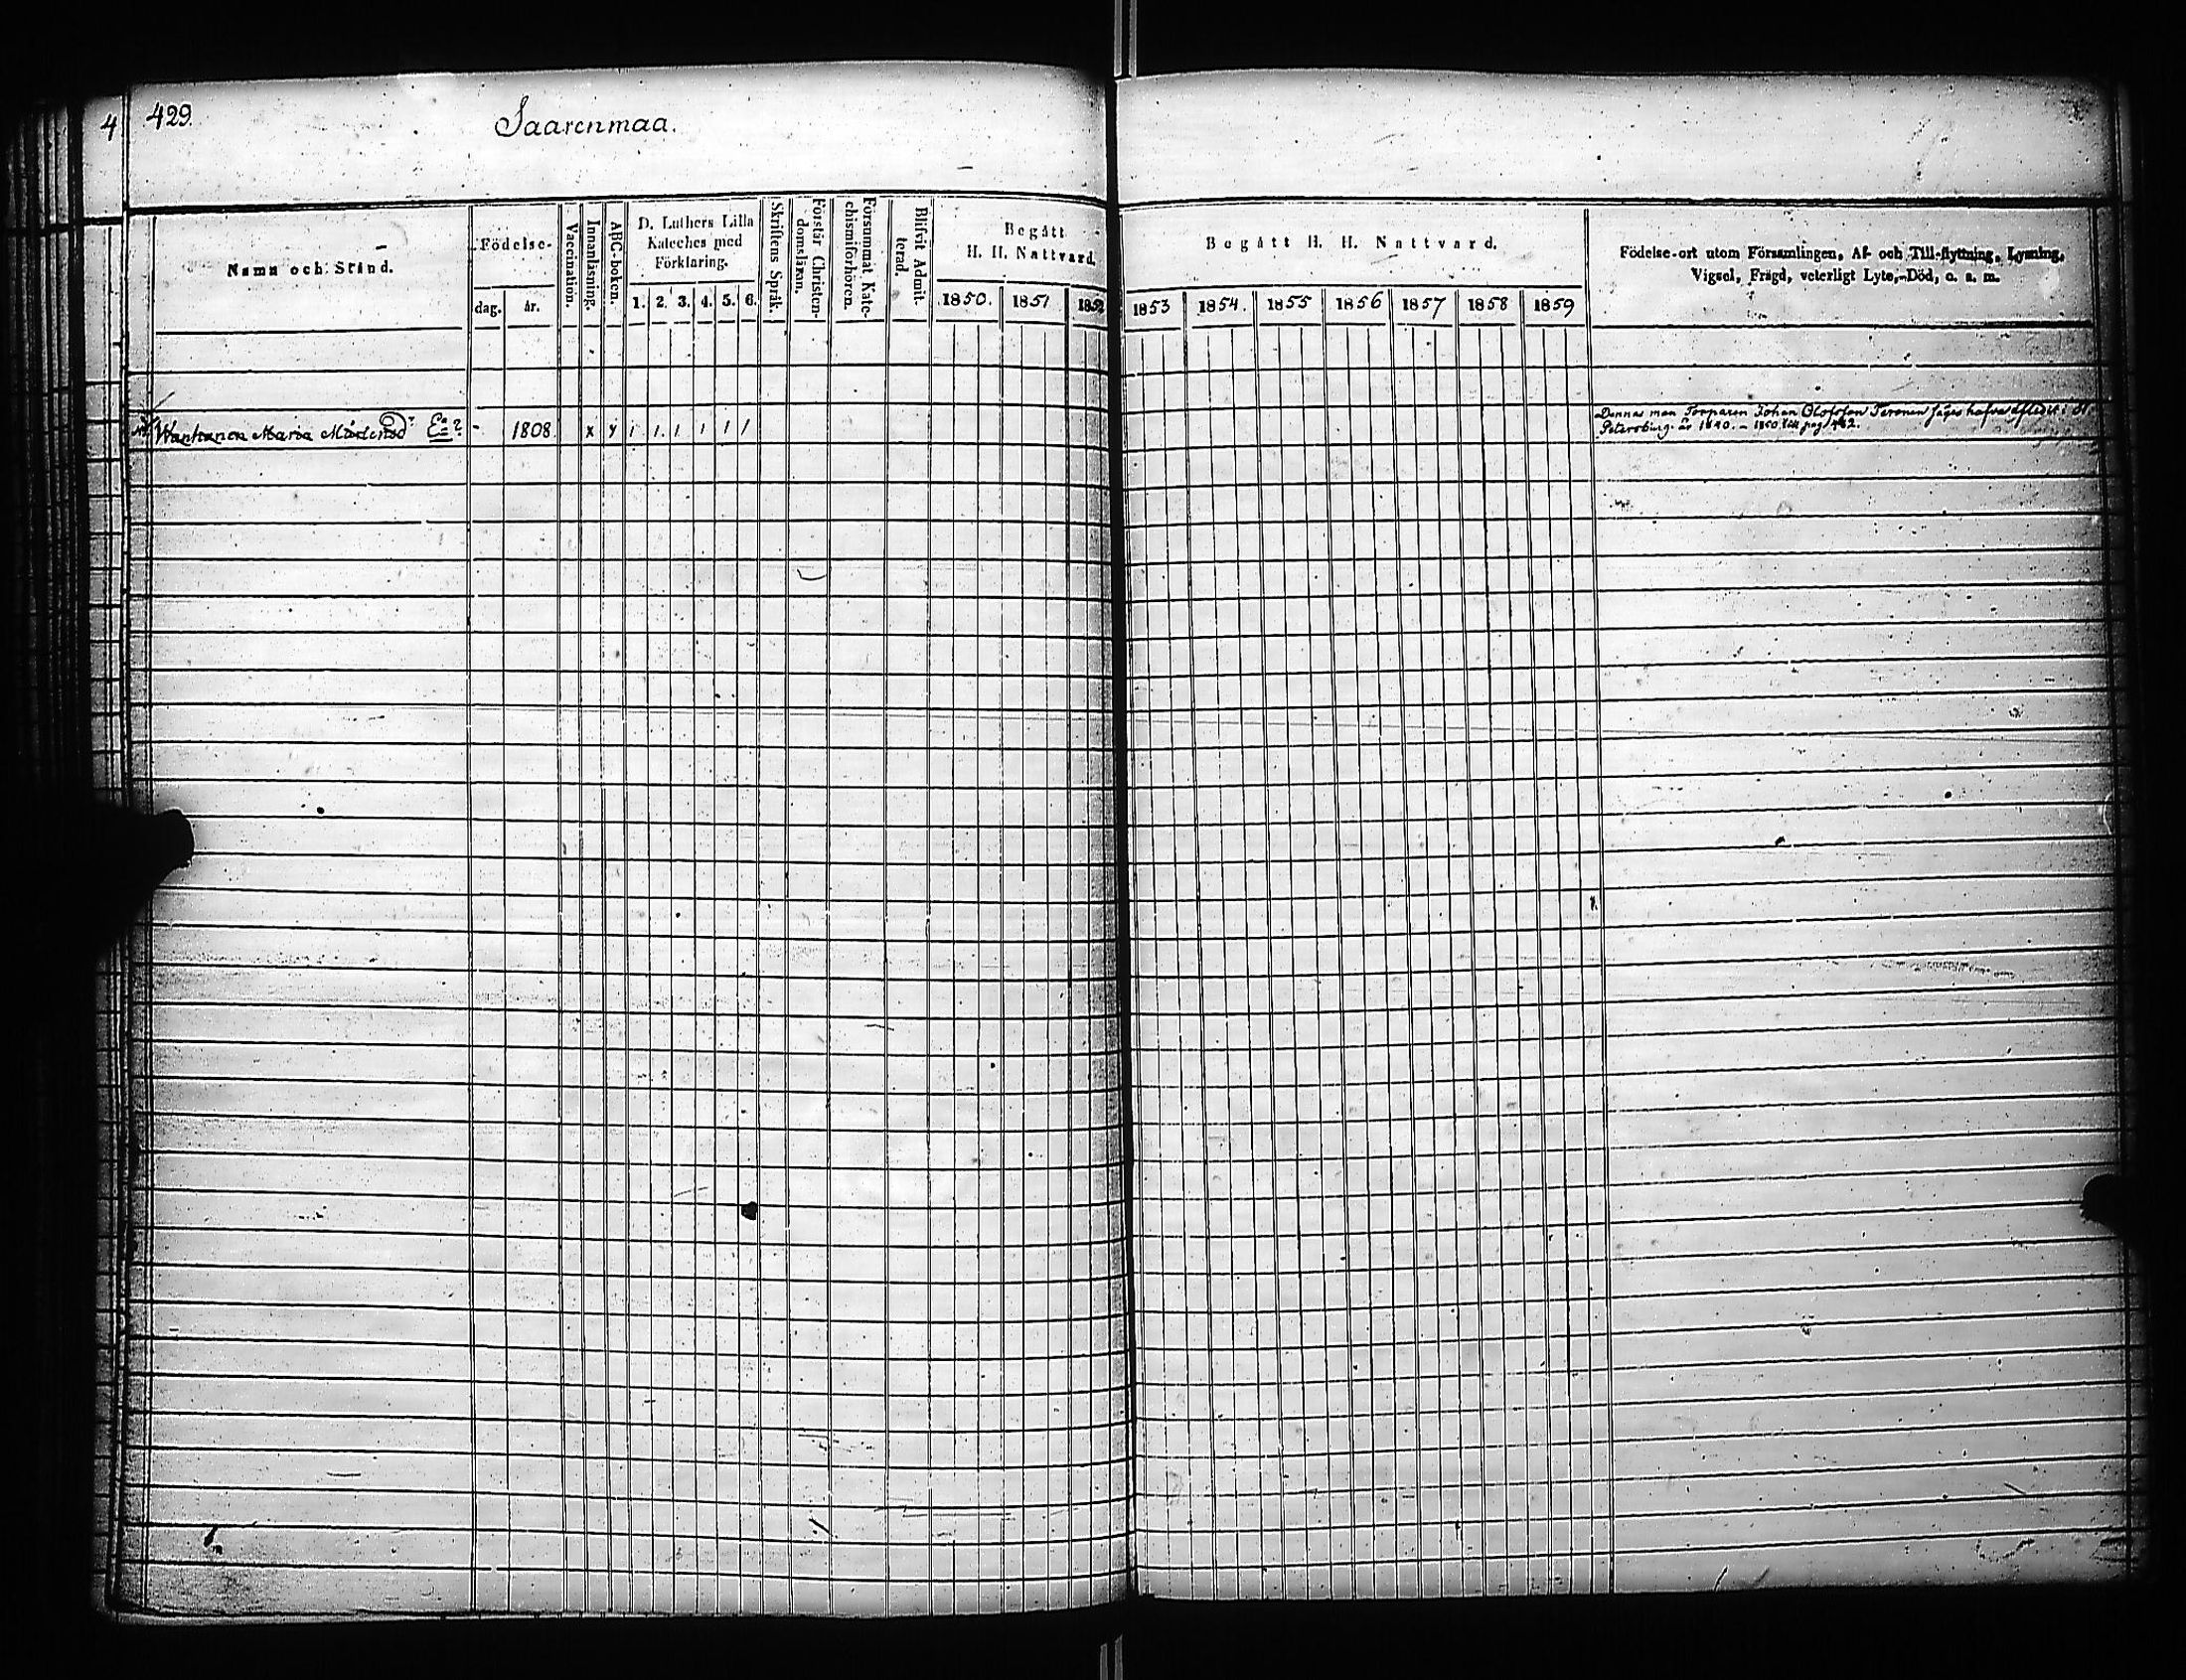 4
429.
Saarenmaa.
Namn och Stånd.
Födelse-
dag.
år.
Vaccination.
Innanläsning.
ABC-boken.
D. Luthers Lilla
Kateches med
Förklaring.
1. 2. 3. 4. 5. 6.
Skriftens Språk.
Förstår Christen-
domsläran.
Försummat Kate-
chismiförhören.
Blifvit Admit-
terad.
Begått
H. H. Nattvard.
1850. 1851 1852
Begått H. H. Nattvard.
1853 1854. 1855 1856 1857 1858 1859
Födelse-ort utom Församlingen, Af- och Till-flyttning, Lysning,
Vigsel, Frägd, veterligt Lyte, Död, o. s. m.
Maria Mårtensdr Ea? - 1808 x y 1 1. 1 1 1 1
Dennas man Torparen Johan Olofsson säges hafva aflidit i St.
Petersburg år 1840. – 1850 till pag